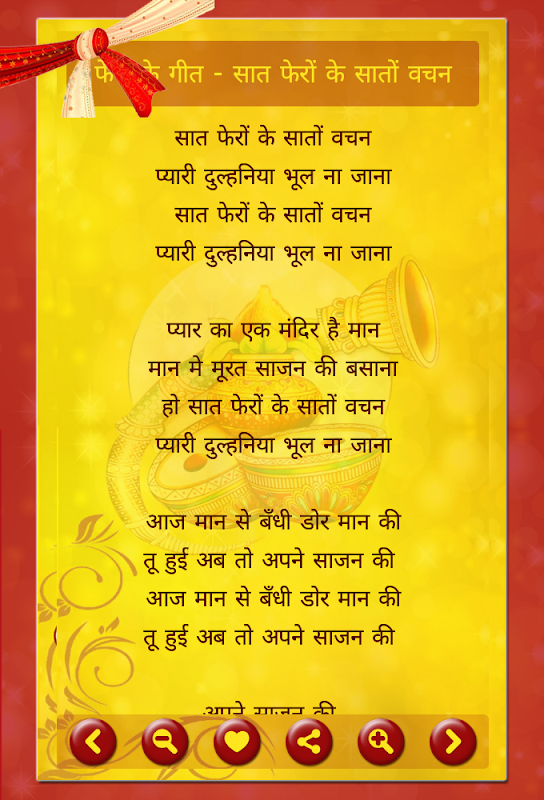 के गीत - सात फेरों के सातों वचन
सात फेरों के सातों वचन
प्यारी दुल्हनिया भूल ना जाना
सात फेरों के सातों वचन
प्यारी दुल्हनिया भूल ना जाना
प्यार का एक मंदिर है मान
मान मे मूरत साजन की बसाना
हो सात फेरों के सातों वचन
प्यारी दुल्हनिया भूल ना जाना
आज मान से बँधी डोर मान की
तू हुई अब तो अपने साजन की
आज मान से बँधी डोर मान की
तू हुई अब तो अपने साजन की
अपने साजन की